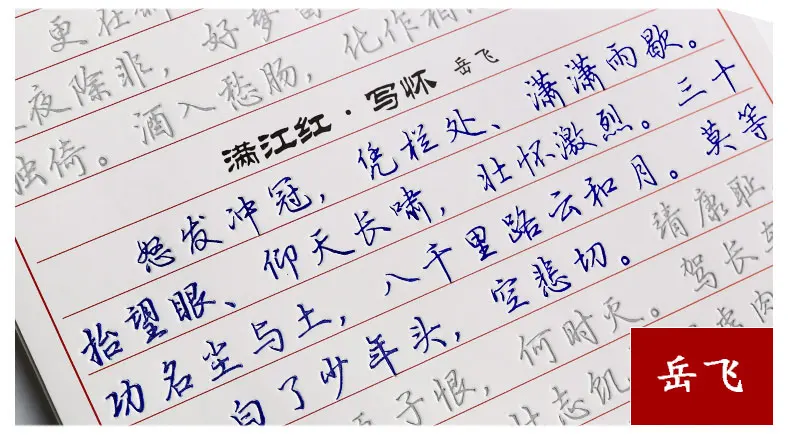 更在
夜除非，好梦
独倚。酒入愁肠，化作相
满江红·写怀 岳飞
怒发冲冠，凭栏处、潇潇雨歇。
抬望眼、仰天长啸，壮怀激烈。三十
功名尘与土，八千里路云和月。莫等
白了少年头，空悲切。靖康耻
子恨，何时灭。驾长车
壮志饥 虏肉
岳飞